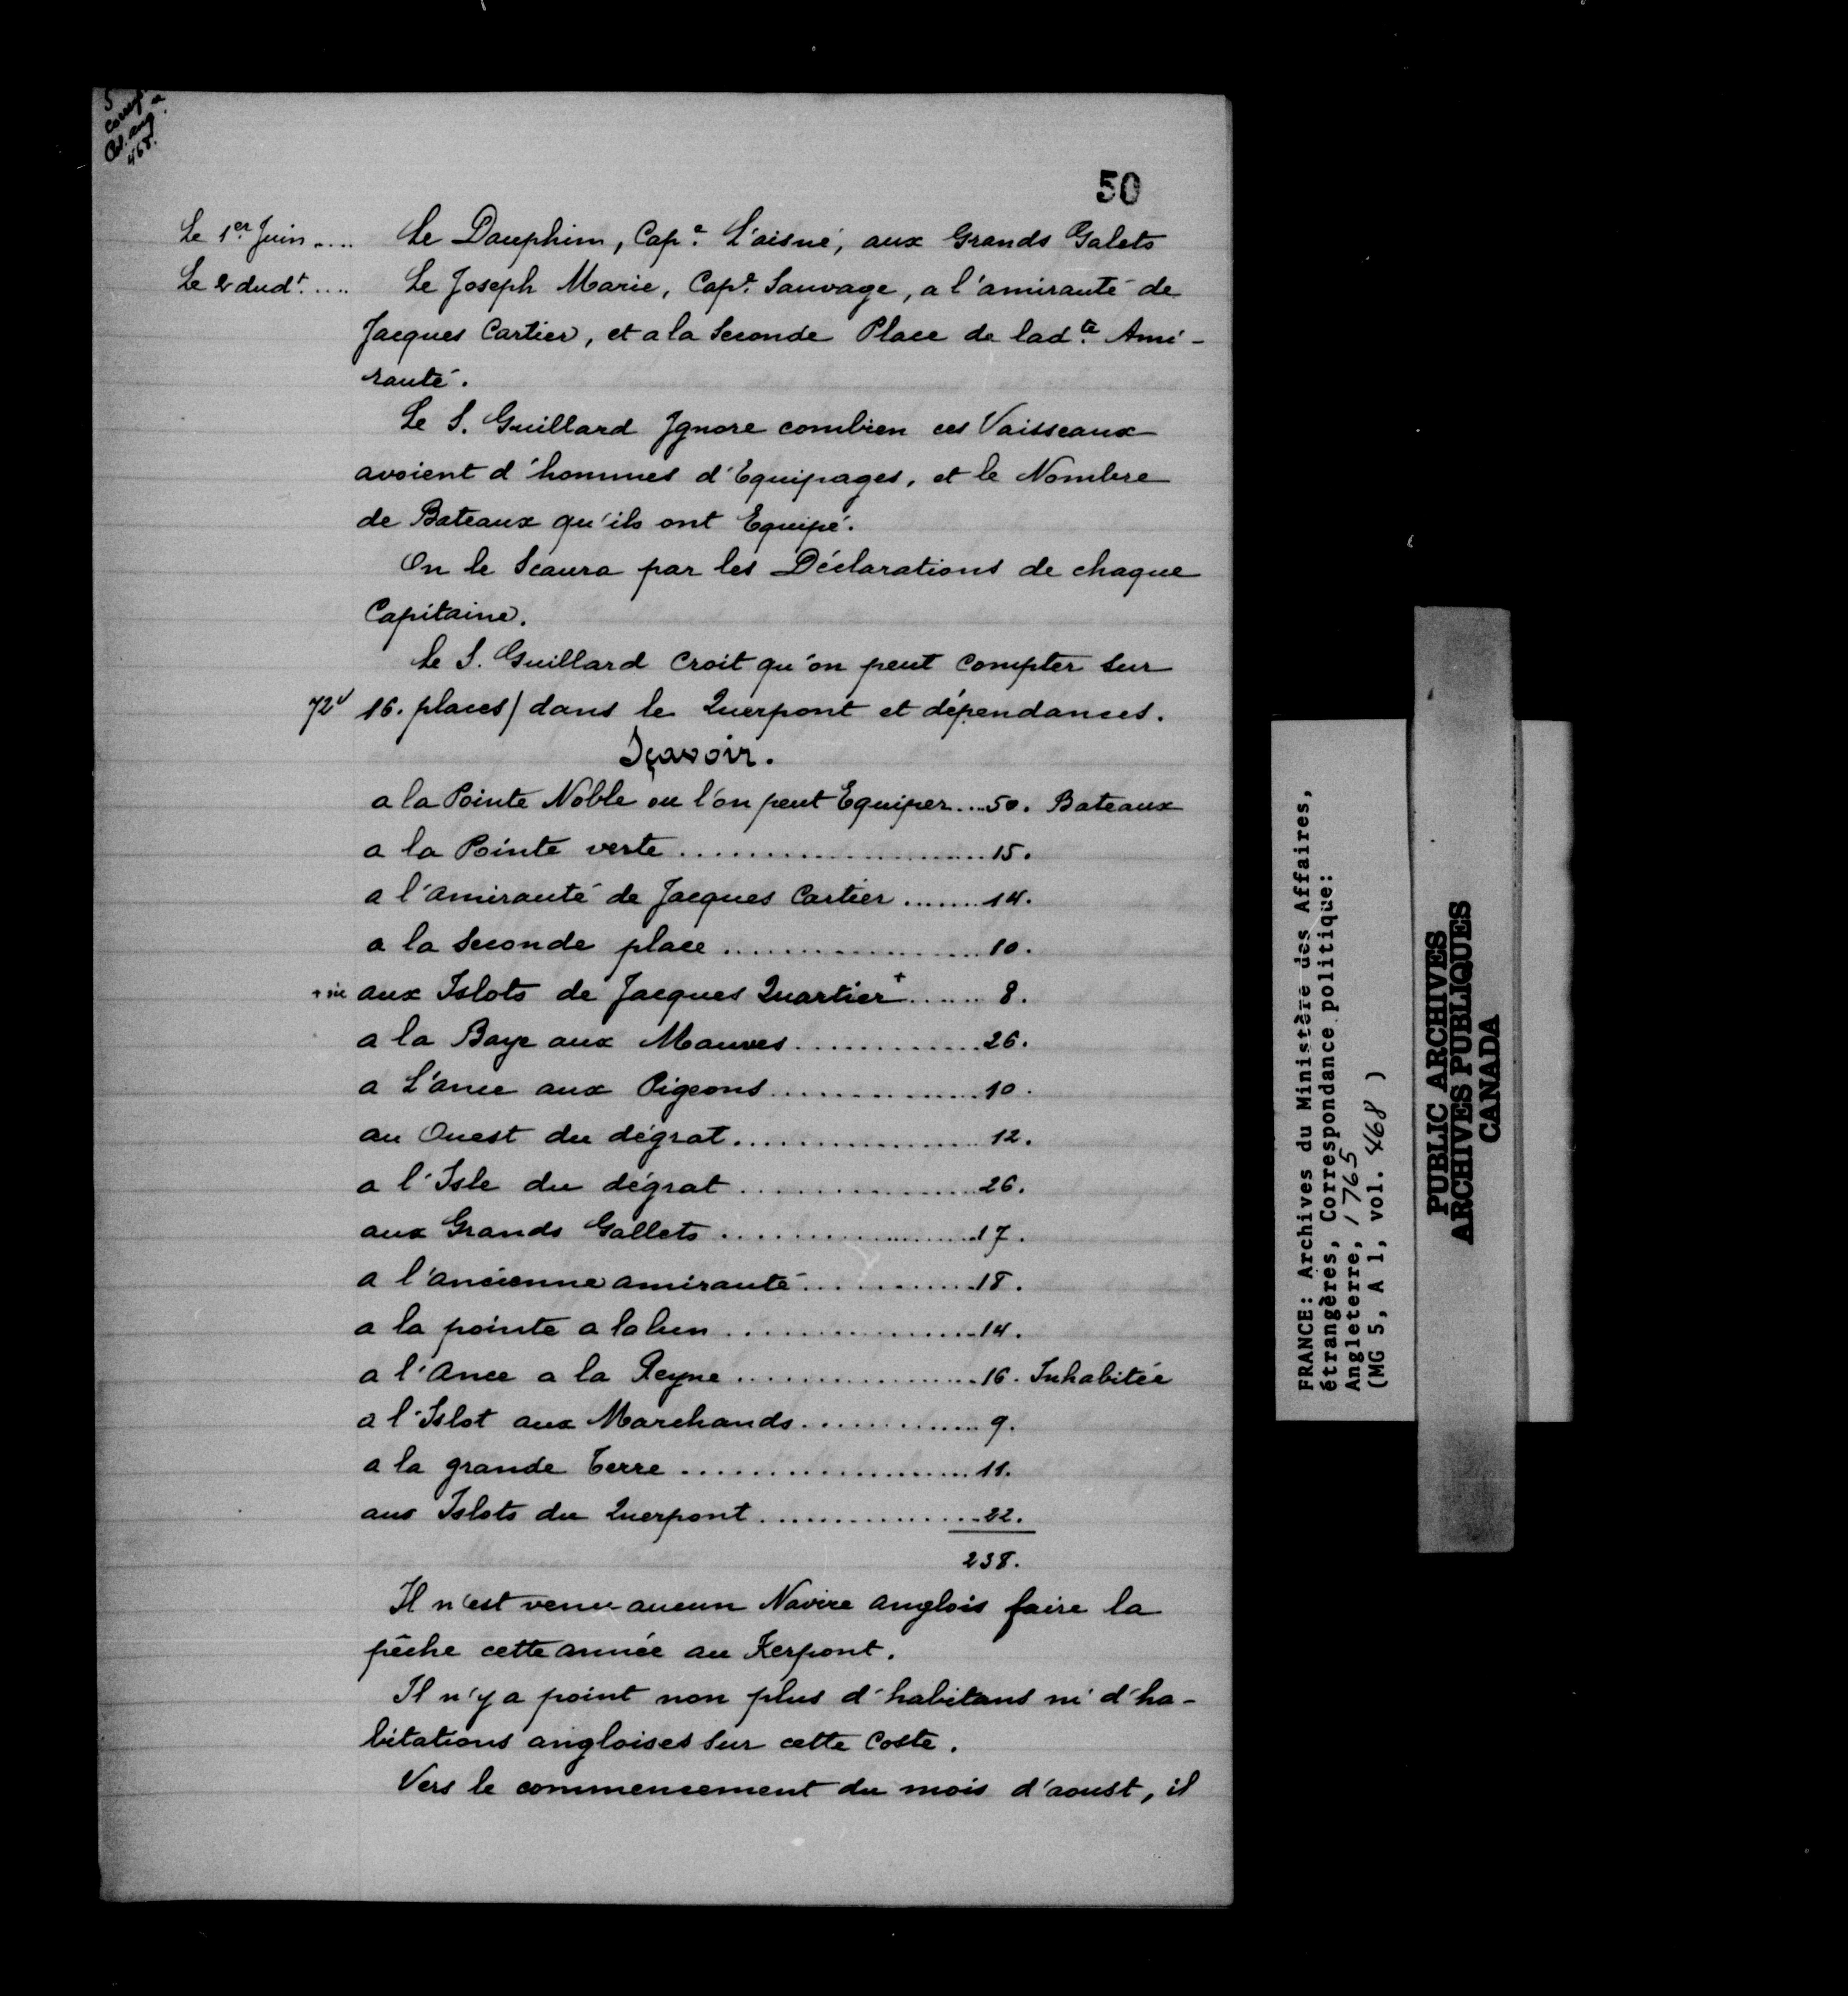 5
Corresp.
Pol. Ang.
468.
50
Le 1er Juin .... Le Dauphin, Cape. L'aisné, aux Grands Galets
Le 2 dudt. .... Le Joseph Marie, Cape. Sauvage, a l'amirauté de
Jacques Cartier, et a la Seconde Place de ladte. Ami-
rauté.
Le S. Guillard Jgnore combien ces Vaisseaux
avoient d'hommes d'Equipages, et le Nombre
de Bateaux qu'ils ont Equipé.
On le Scaura par les Déclarations de chaque
Capitaine.
Le S. Guillard Croit qu'on peut Compter Sur
72v 16. places / dans le Querpont et dépendances.
Sçavoir.
a la Pointe Noble ou l'on peut Equiper .... 50. Bateaux
a la Pointe verte .................... 15.
a l'amirauté de Jacques Cartier ....... 14.
a la Seconde place ................ 10.
+ sic aux Islots de Jacques Quartier + ...... 8.
a la Baye aux Mauves ............. 26.
a L'ance aux Pigeons ............... 10.
au Ouest du dégrat ................. 12.
a l'Isle du dégrat ................ 26.
aux Grands Gallets .................. 17.
a l'ancienne amirauté ............ 18.
a la pointe a laben ................ 14.
a l'Ance a la Reyne ................ 16. Inhabitée
a l'Islot aux Marchands ............. 9.
a la grande Terre .................... 11.
aux Islots du Querpont ............... 22.
238.
Il n'est venu aucun Navire anglois faire la
pêche cette année au Kerpont.
Il n'y a point non plus d'habitans ni d'ha-
bitations angloises Sur cette Coste.
Vers le commencement du mois d'aoust, il
FRANCE: Archives du Ministère des Affaires,
étrangères, Correspondance politique:
Angleterre, 1765
(MG 5, A 1, vol. 468 )
PUBLIC ARCHIVES
ARCHIVES PUBLIQUES
CANADA